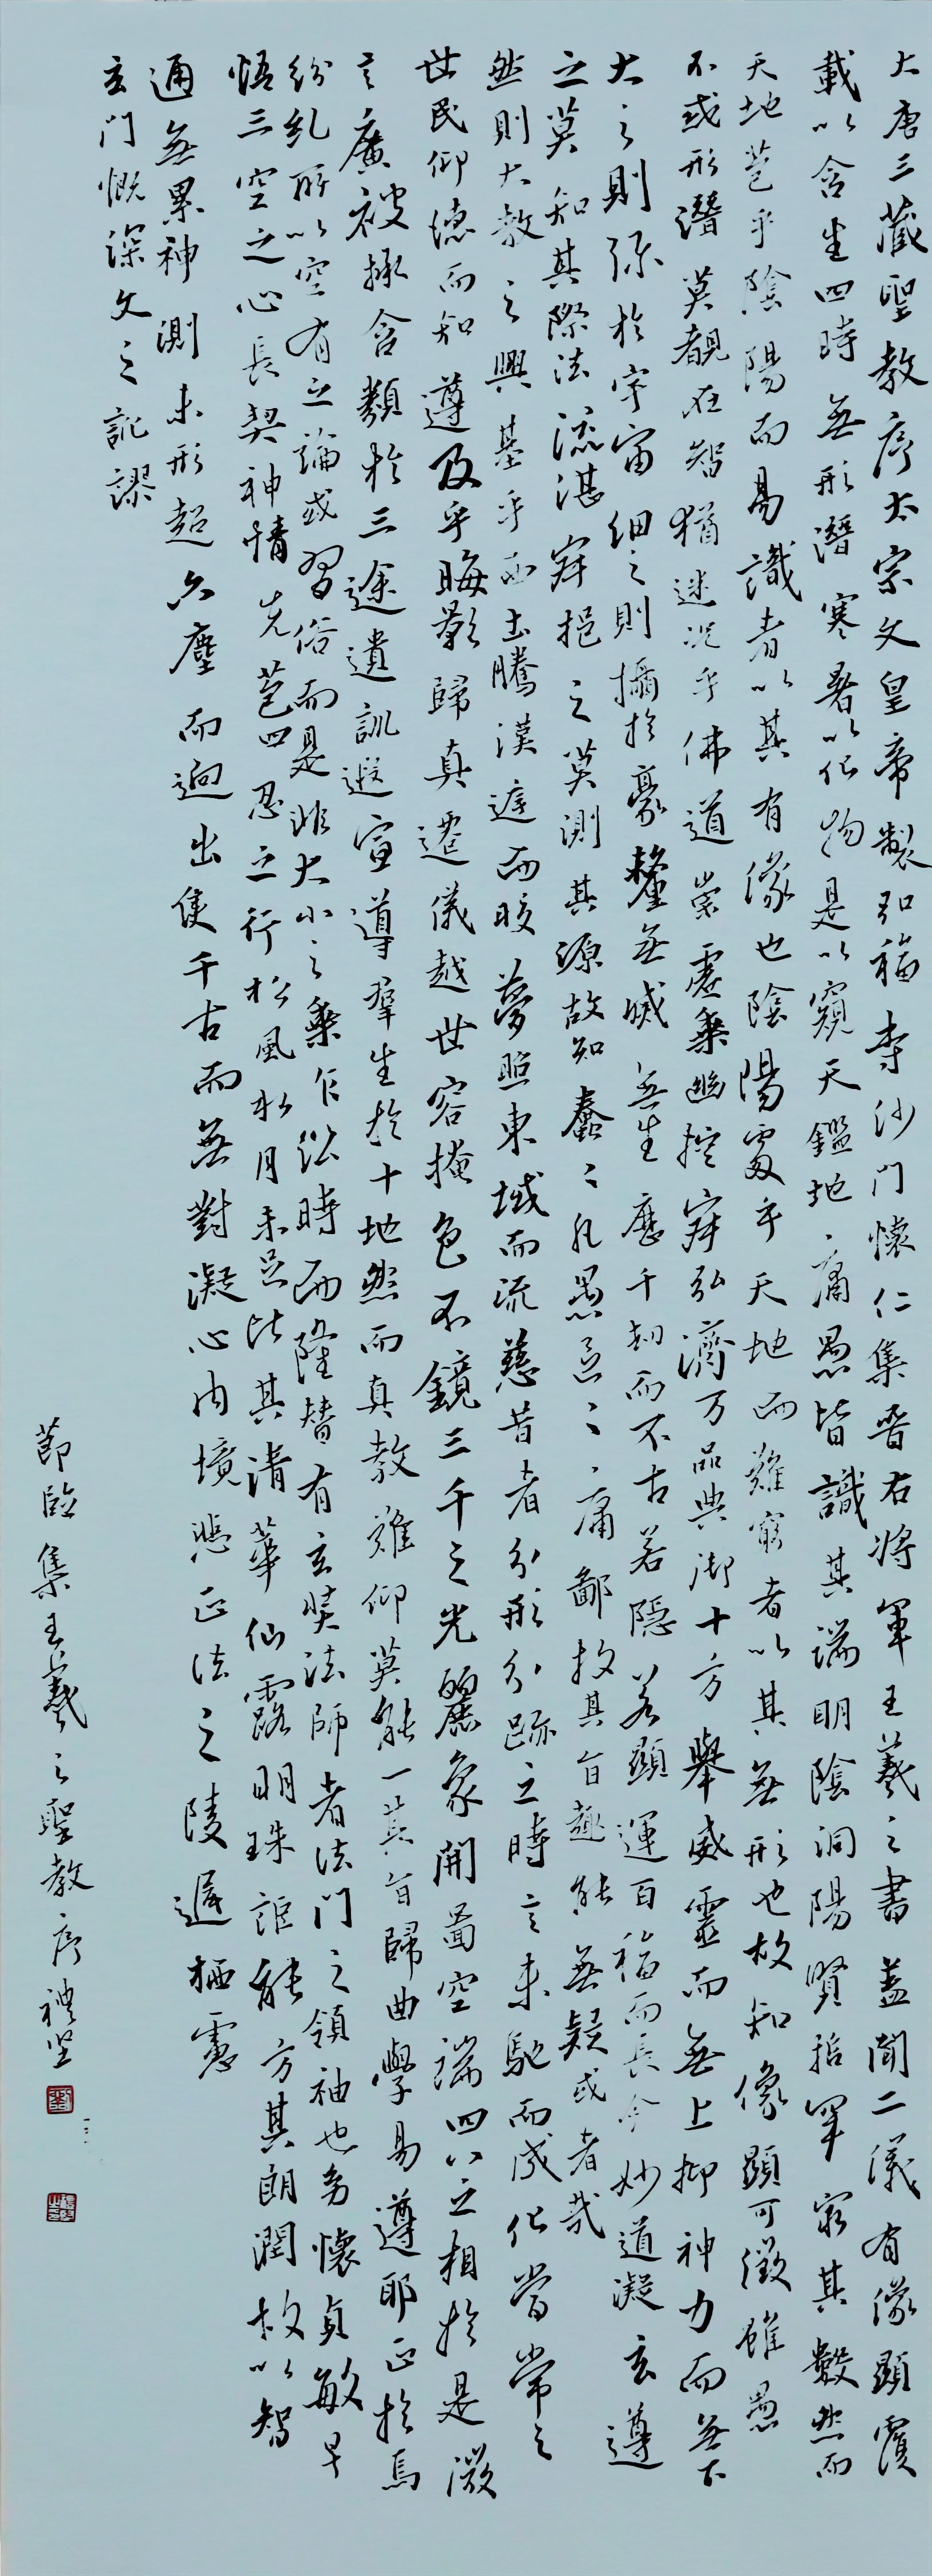 大唐三藏聖教序太宗文皇帝製弘福寺沙門懷仁集晉右將軍王羲之書蓋聞二儀有像顯覆
載以含生四時無形潛寒暑以化物是以窺天鑑地庸愚皆識其端明陰洞陽賢哲罕窮其數然而
天地苞乎陰陽而易識者以其有像也陰陽處乎天地而難窮者以其無形也故知像顯可徵雖愚
不惑形潛莫覩在智猶迷況乎佛道崇虛乘幽控寂弘濟万品典御十方舉威靈而無上抑神力而無下
大之則彌於宇宙細之則攝於豪釐無滅無生歷千劫而不古若隱若顯運百福而長今妙道凝玄遵
之莫知其際法流湛寂挹之莫測其源故知蠢々凡愚區々庸鄙投其旨趣能無疑或者哉
然則大教之興基乎西土騰漢庭而皎夢照東域而流慈昔者分形分跡之時言未馳而成化當常之
世民仰德而知遵及乎晦影歸真遷儀越世容掩色不鏡三千之光麗象開圖空端四八之相於是微
言廣被拯含類於三途遺訓遐宣導羣生於十地然而真教難仰莫能一其旨歸曲學易遵耶正於焉
紛糺所以空有之論或習俗而是非大小之乘乍沿時而隆替有玄奘法師者法門之領袖也幼懷貞敏早
悟三空之心長契神情先苞四忍之行松風水月未足比其清華仙露明珠詎能方其朗潤故以智
通無累神測未形超六塵而迥出隻千古而無對凝心內境悲正法之陵遲栖慮
玄門慨深文之訛謬
節臨集王羲之聖教序禮